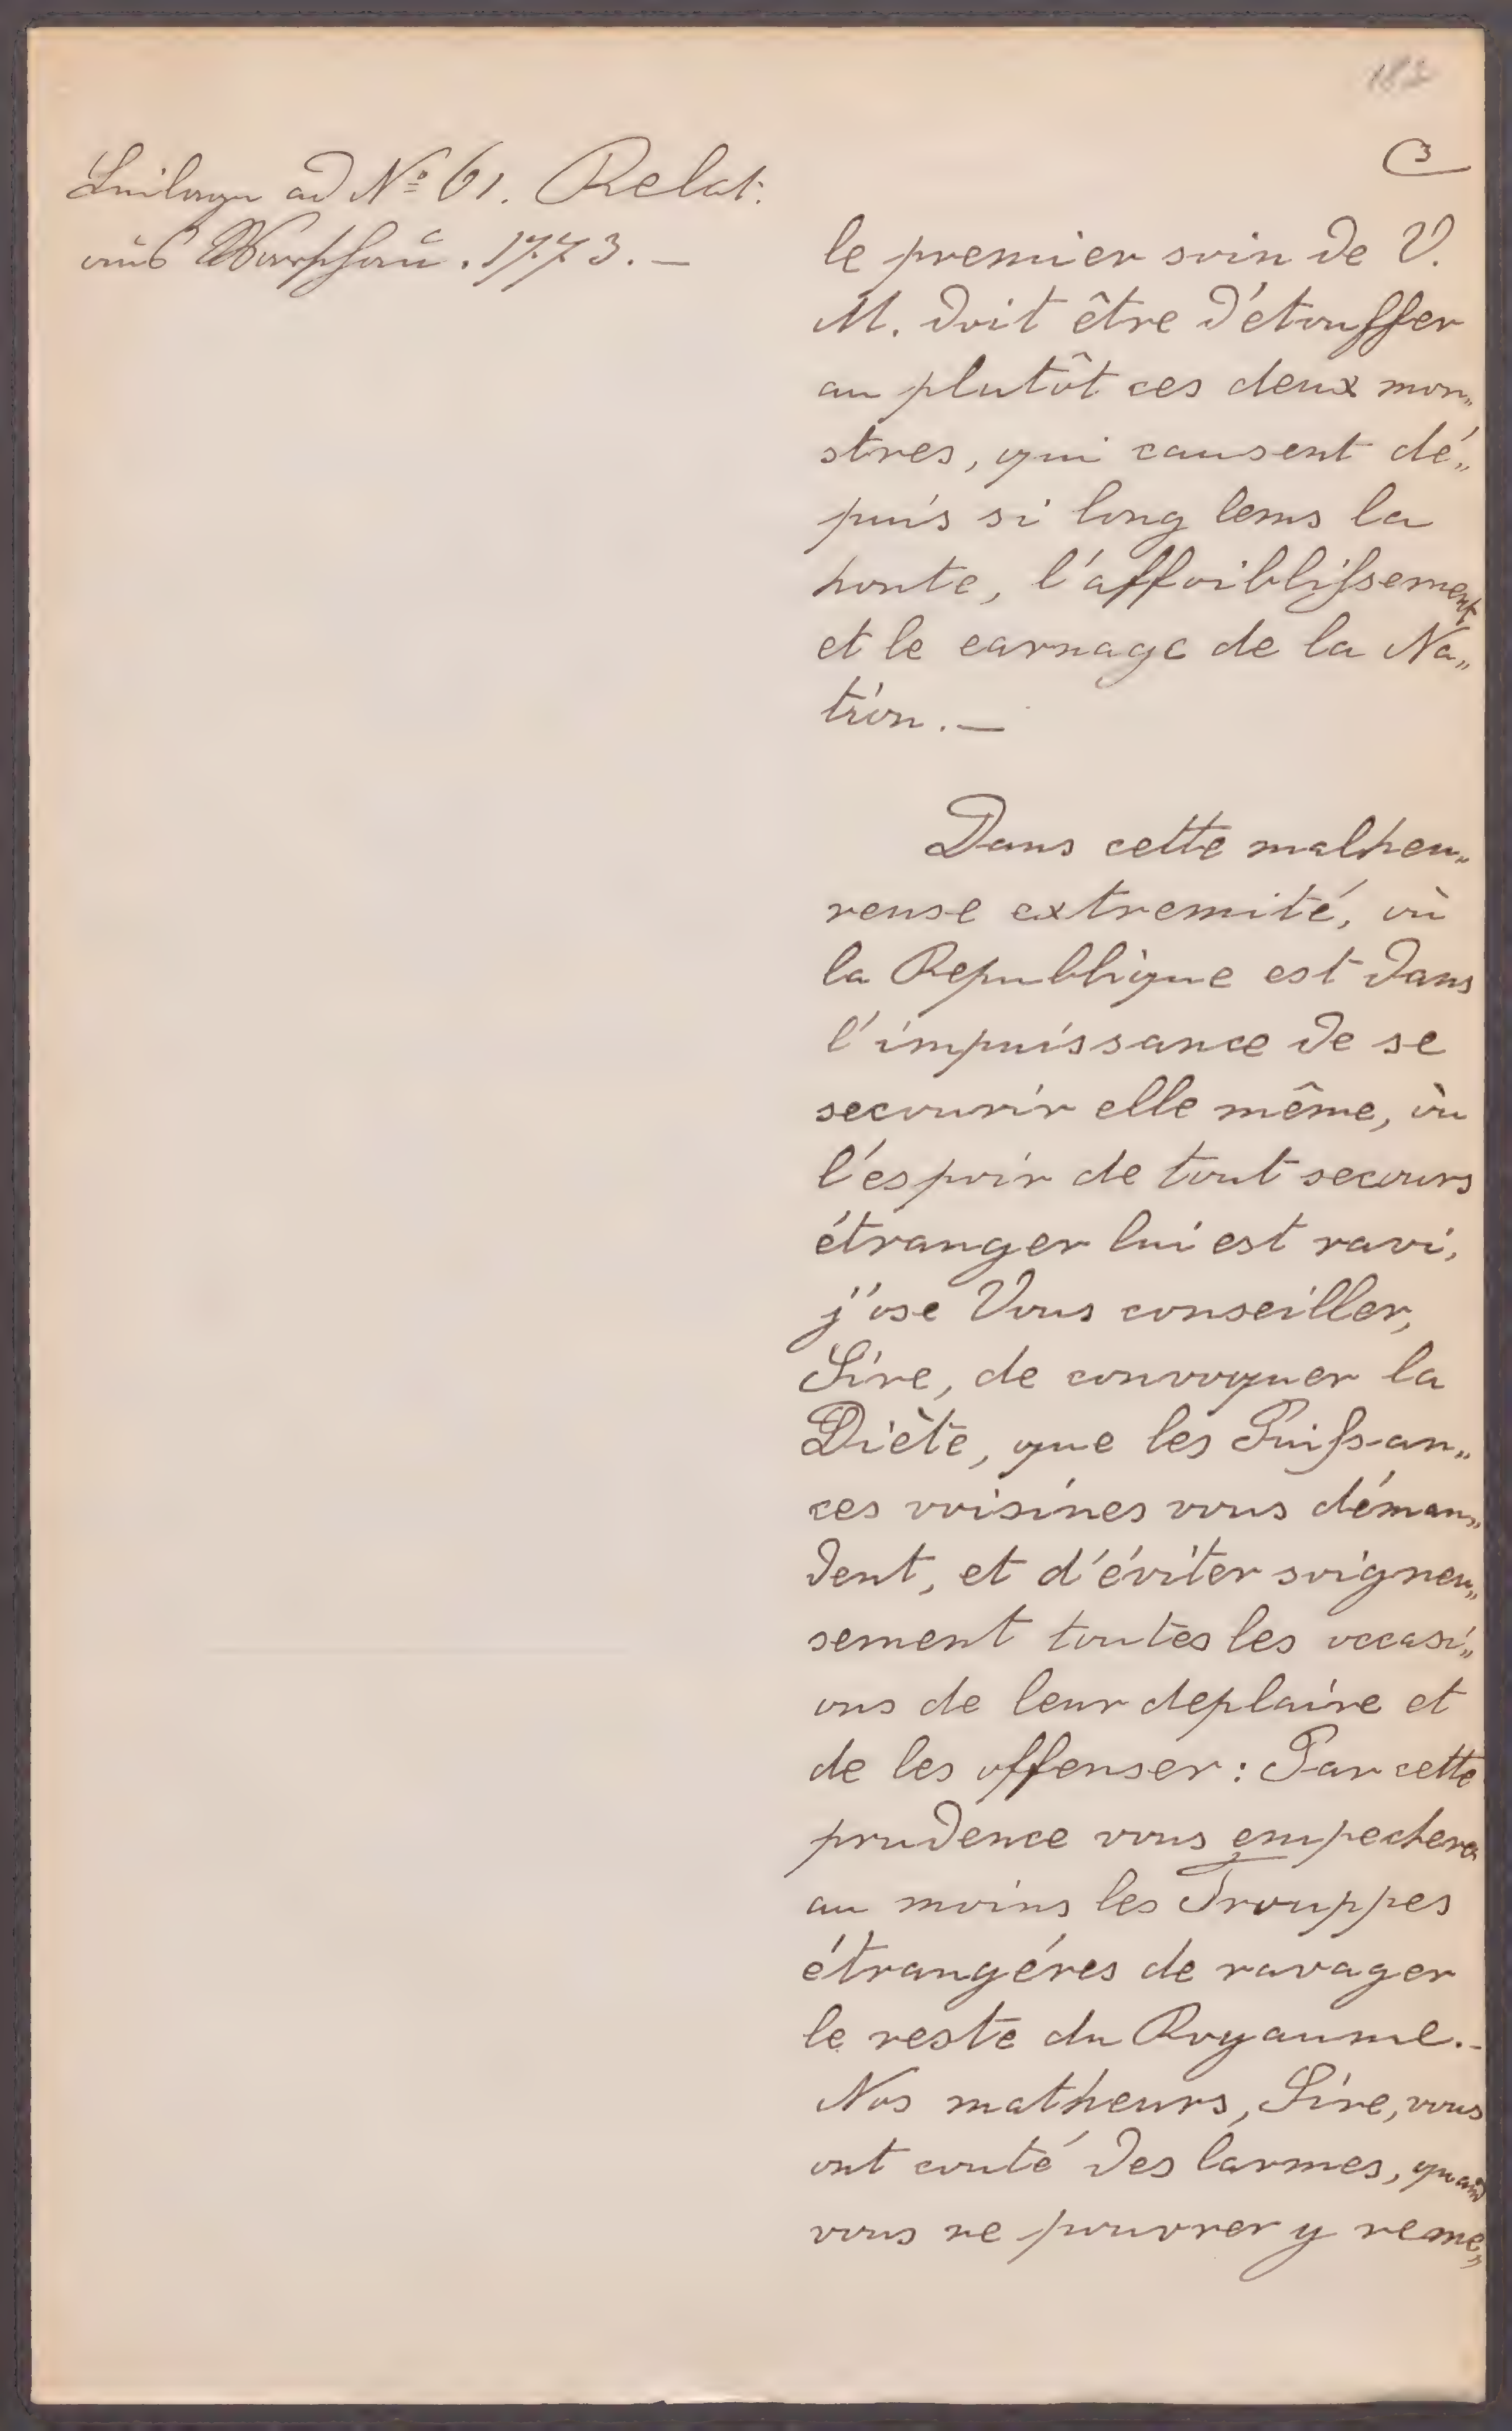 Beilage ad Nº 61. Relat:
aus Warschau. 1773. —
3
le premier soin de V.
M. doit être d'étouffer
au plutôt ces deux mon„
stres, qui causent dé„
puis si long tems la
honte, l'affoiblißement
et le carnage de la Na„
tion. —
Dans cette malheu„
reuse extremité, où
la Republique est dans
l'impuissance de se
secourir elle même, où
l'espoir de tout secours
étranger lui est ravi,
j'ose Vous conseiller,
Sire, de convoquer la
Diète, que les Puißan„
ces voisines vous déman„
dent, et d'éviter soigneu„
sement toutes les occasi„
ons de leur deplaire et
de les offenser: Par cette
prudence vous empecherez
au moins les Trouppes
étrangéres de ravager
le reste du Royaume. -
Nos malheurs, Sire, vous
ont couté des larmes, quand
vous ne pouvrer y reme„